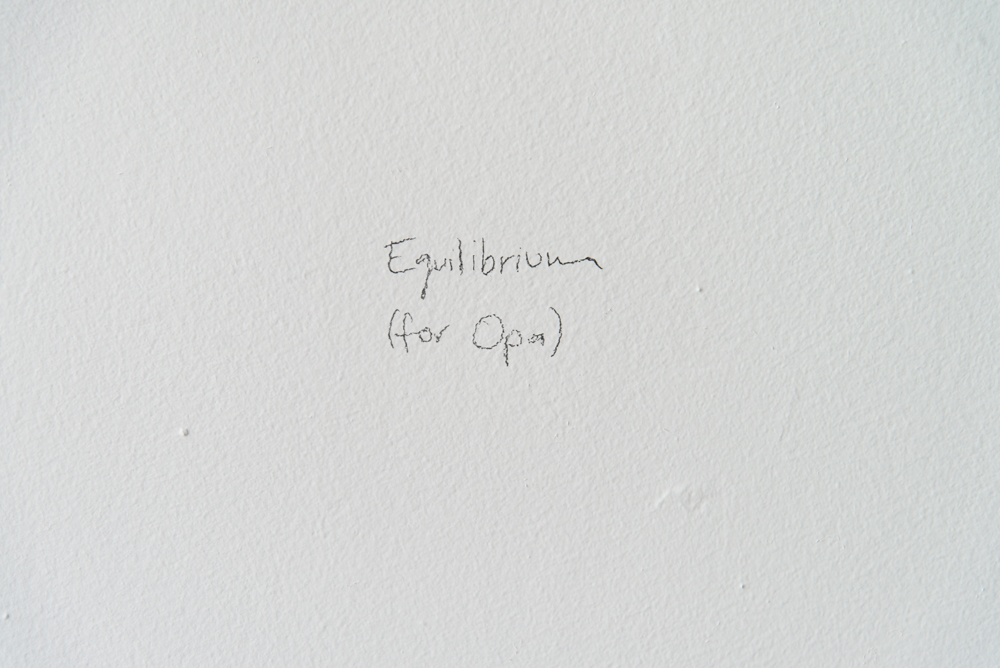 Equilibrium
(for Opa)